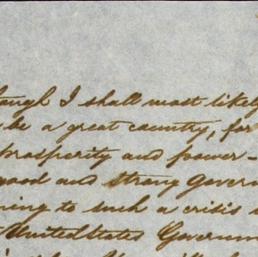 ough I shall most likely
be a great country, for
prosperity and power-
good and strong Govern
ning to such a crisis
United States Governm